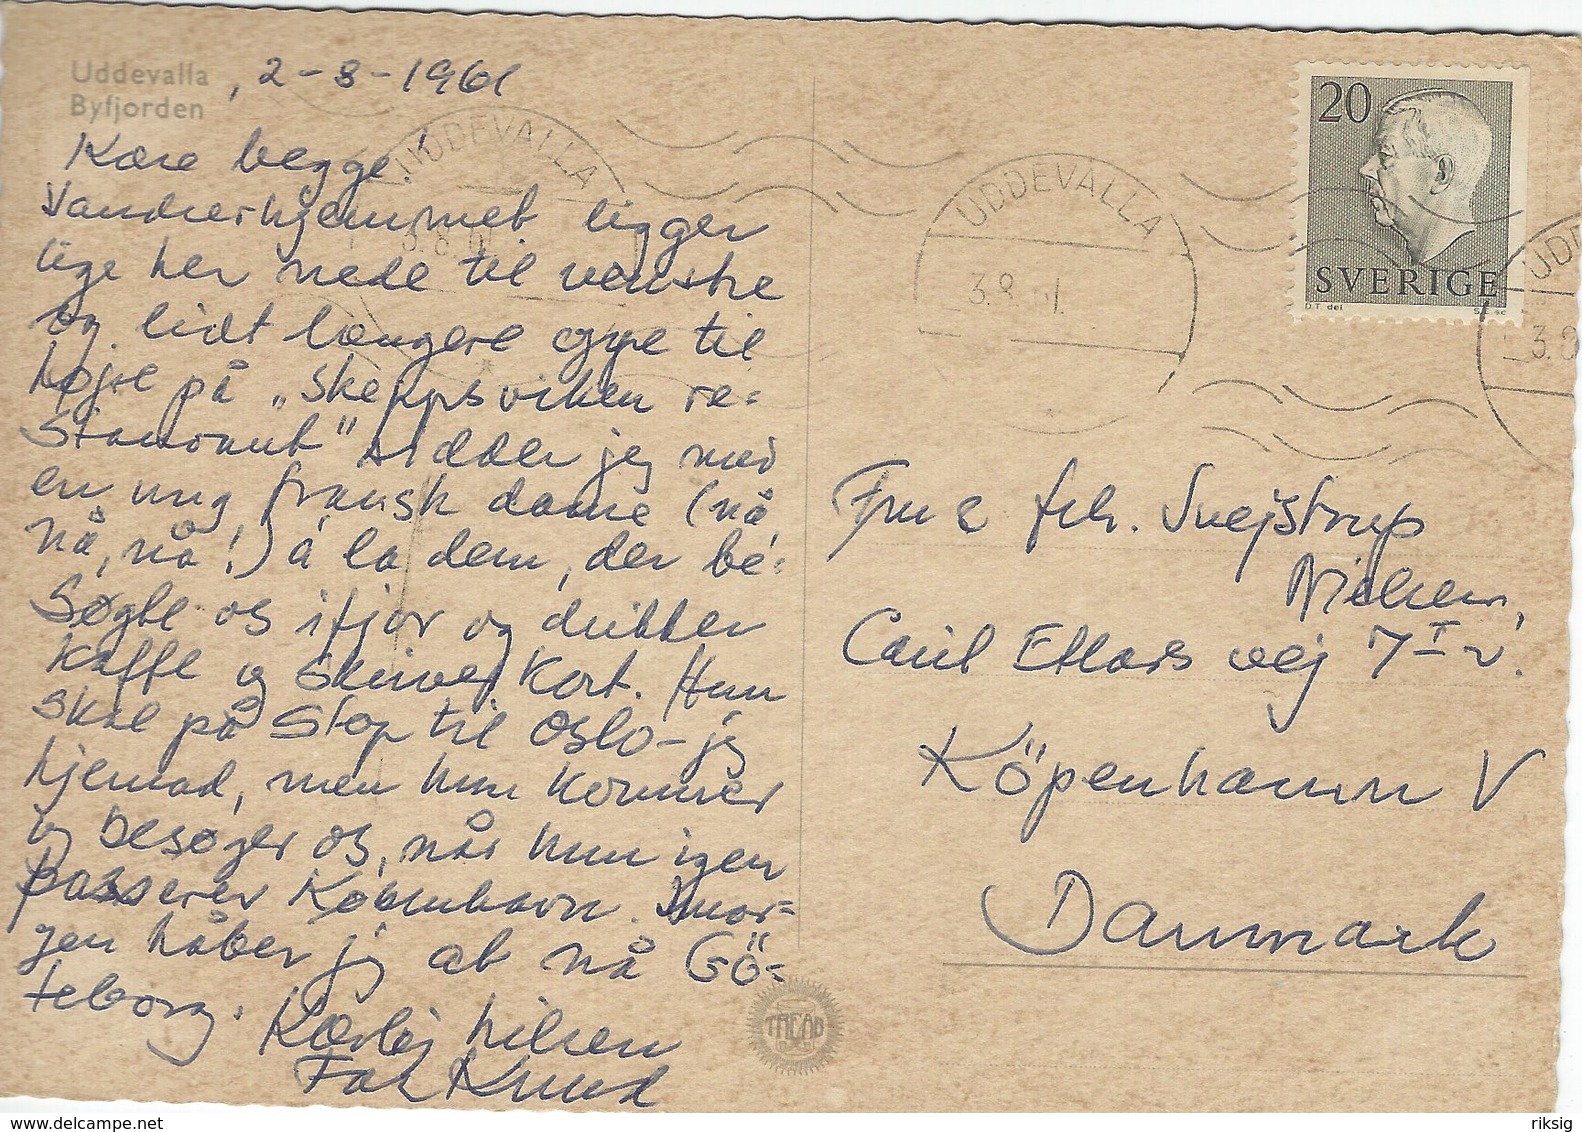 Uddevalla
Byfjorden
, 2-8-1961
Kære begge!
Vandrerhjemmet ligger
lige her nede til venstre
og lidt længere oppe til
højre på „Skeppsviken re=
staurant" sidder jeg med
en ung fransk dame (nå
nå, nå!) á la dem, der be=
søgte os ifjor og drikker
kaffe og skriver kort. Hun
skal på stop til Oslo - jeg
hjemad, men hun kommer
og besøger os, når hun igen
passerer København. Imor=
gen håber jeg at nå Gö=
teborg.
Kærlig hilsen
Far Knud
UDDEVALLA
3.8.61
UDDEVALLA
3.8.61
UDD
3.8
20
SVERIGE
D.T. del
S.E. sc
Fru & frk. Svejstrup
Nielsen,
Carit Etlars vej 7 I v.
Köpenhamn V
Danmark
TREAB
delcampe.net
riksig